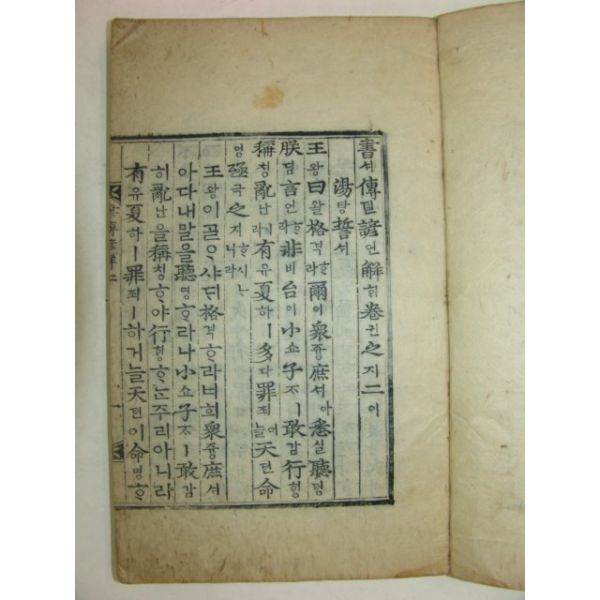 書셔傳뎐諺언解ᄒᆡ卷권之지二이
湯탕誓셔
王왕曰왈格격ᄒᆞ라爾이衆즁庶셔아悉실聽텽
朕딤言언ᄒᆞ라非비台이小쇼子ᄌᆞㅣ敢감行ᄒᆡᆼ
稱칭亂난이라有유夏하ㅣ多다罪죄어늘天텬命
명殛극之지ᄒᆞ시ᄂᆞ니라
王왕이ᄀᆞᆯᄋᆞ샤ᄃᆡ格격ᄒᆞ라너희衆즁庶셔
아다내말을聽텽ᄒᆞ라나小쇼子ᄌᆞㅣ敢감
히亂난을稱칭ᄒᆞ야行ᄒᆡᆼᄒᆞᄂᆞᆫ주리아니라
有유夏하ㅣ罪죄ㅣ하거늘天텬이命명ᄒᆞ